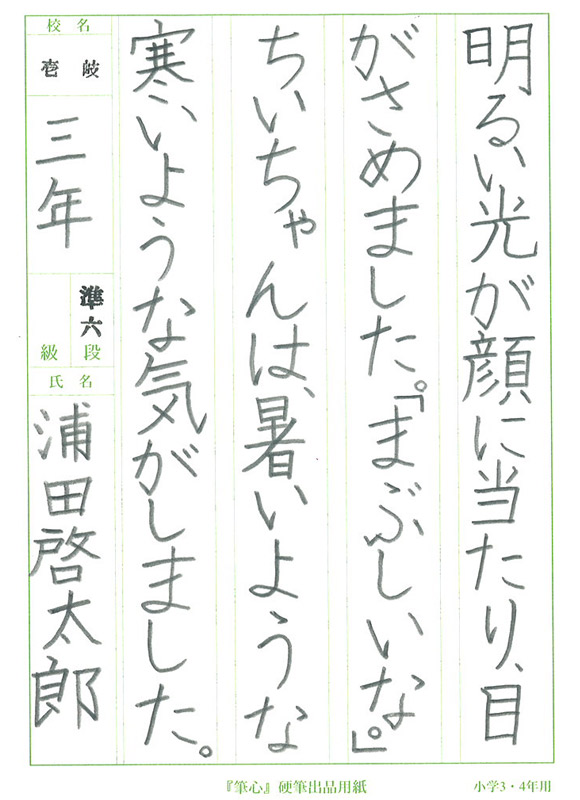 明るい光が顔に当たり、目
がさめました。「まぶしいな。」
ちいちゃんは、暑いような
寒いような気がしました。
校名
壱岐
三年
準六
級段
氏名
浦田啓太郎
『筆心』硬筆出品用紙
小学3・4年用